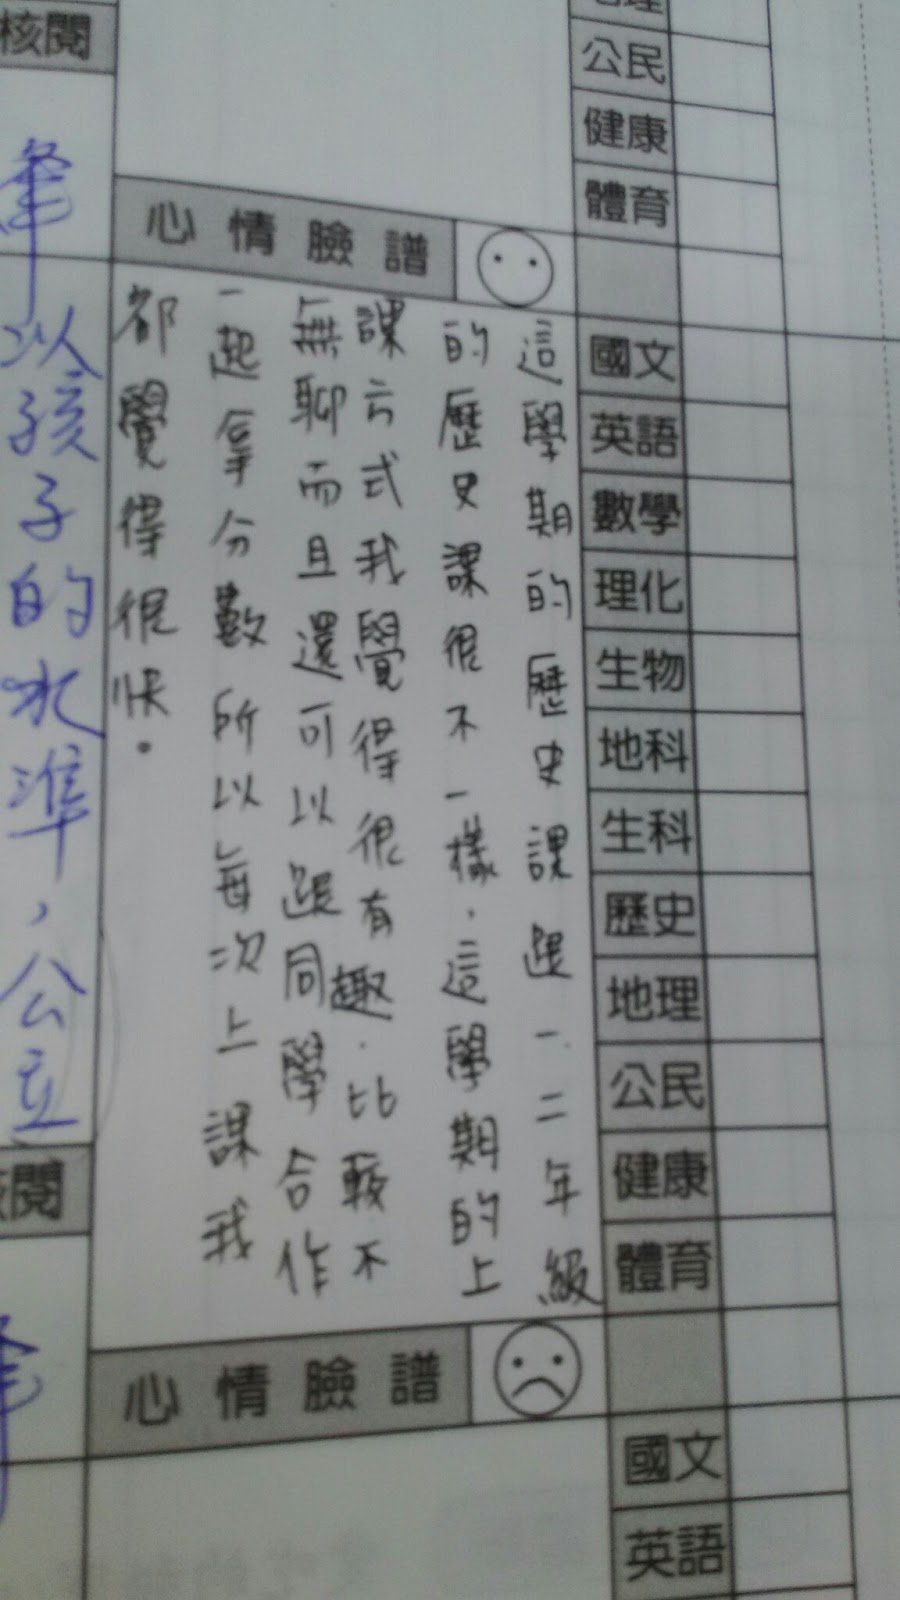 公民
健康
體育
國文
英語
數學
理化
生物
地科
生科
歷史
地理
公民
健康
體育
國文
英語
心情臉譜
這學期的歷史課跟一.二年級
的歷史課很不一樣，這學期的上
課方式我覺得很有趣．比較不
無聊而且還可以跟同學合作
一起拿分數所以每次上課我
都覺得很快。
心情臉譜
核閱
以孩子的水準，公立
核閱